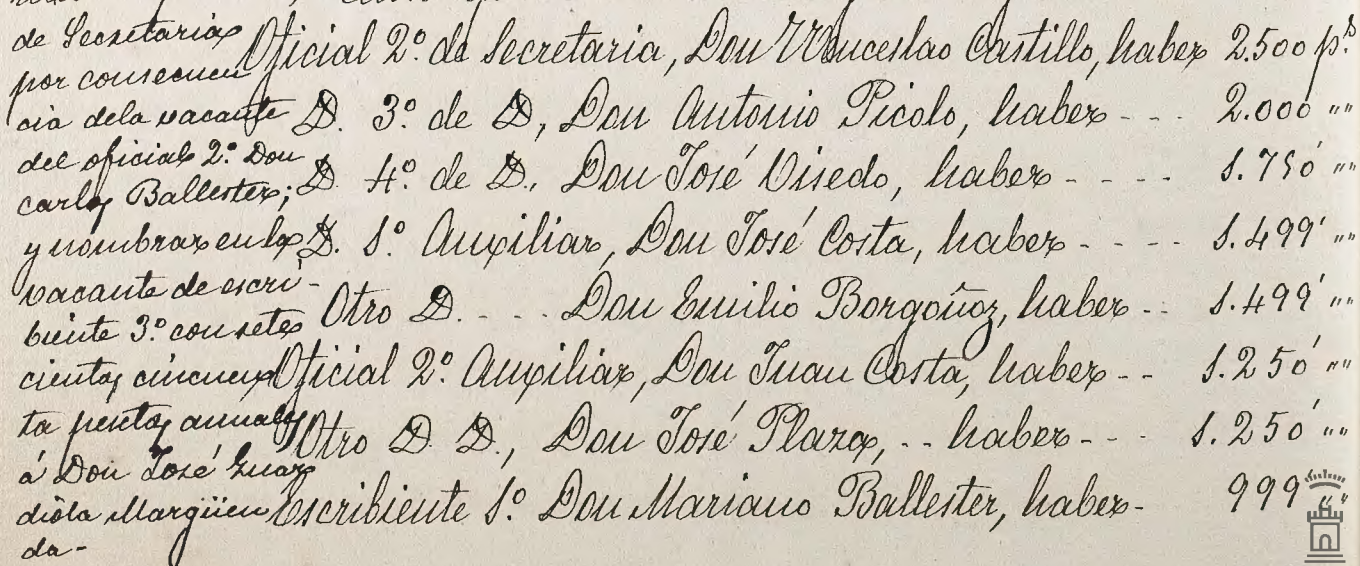 de Secretaria
por consecuen
cia dela vacante
del oficial 2.º Don
carlos Ballester;
y nombrar en la
vacante de escri-
biente 3.º con sete
cientas cincuen
ta pesetas anuales
á Don José Guar
diola Margüen
da-
Oficial 2.º de Secretaria, Don Wenceslao Castillo, haber 2.500 p.s
D. 3.º de D, Don Antonio Picolo, haber - - - 2.000 ""
D. 4.º de D., Don José Visedo, haber - - - - 1.750 ""
D. 1.º Auxiliar, Don José Costa, haber - - - - 1.499 ""
Otro D. - - - Don Emilio Borgoñoz, haber - - 1.499 ""
Oficial 2.º Auxiliar, Don Juan Costa, haber - - 1.250 ""
Otro D. D., Don José Plaza, - - haber - - - 1.250 ""
Escribiente 1.º Don Mariano Ballester, haber - 999 ""